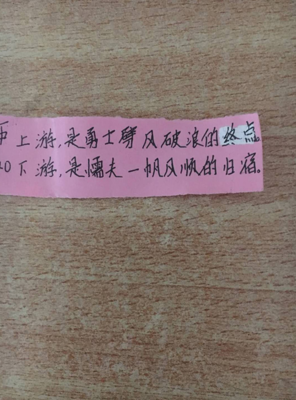 上游,是勇士劈风破浪的终点.
下游,是懦夫一帆风顺的归宿.